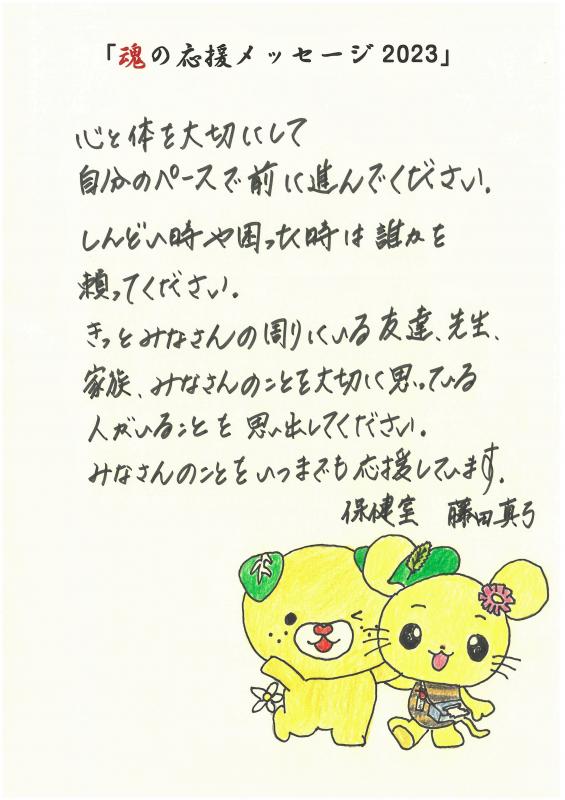 「魂の応援メッセージ2023」
心と体を大切にして
自分のペースで前に進んでください。
しんどい時や困った時は誰かを
頼ってください。
きっとみなさんの周りにいる友達、先生、
家族、みなさんのことを大切に思っている
人がいることを思い出してください。
みなさんのことをいつまでも応援しています。
保健室 藤田真弓